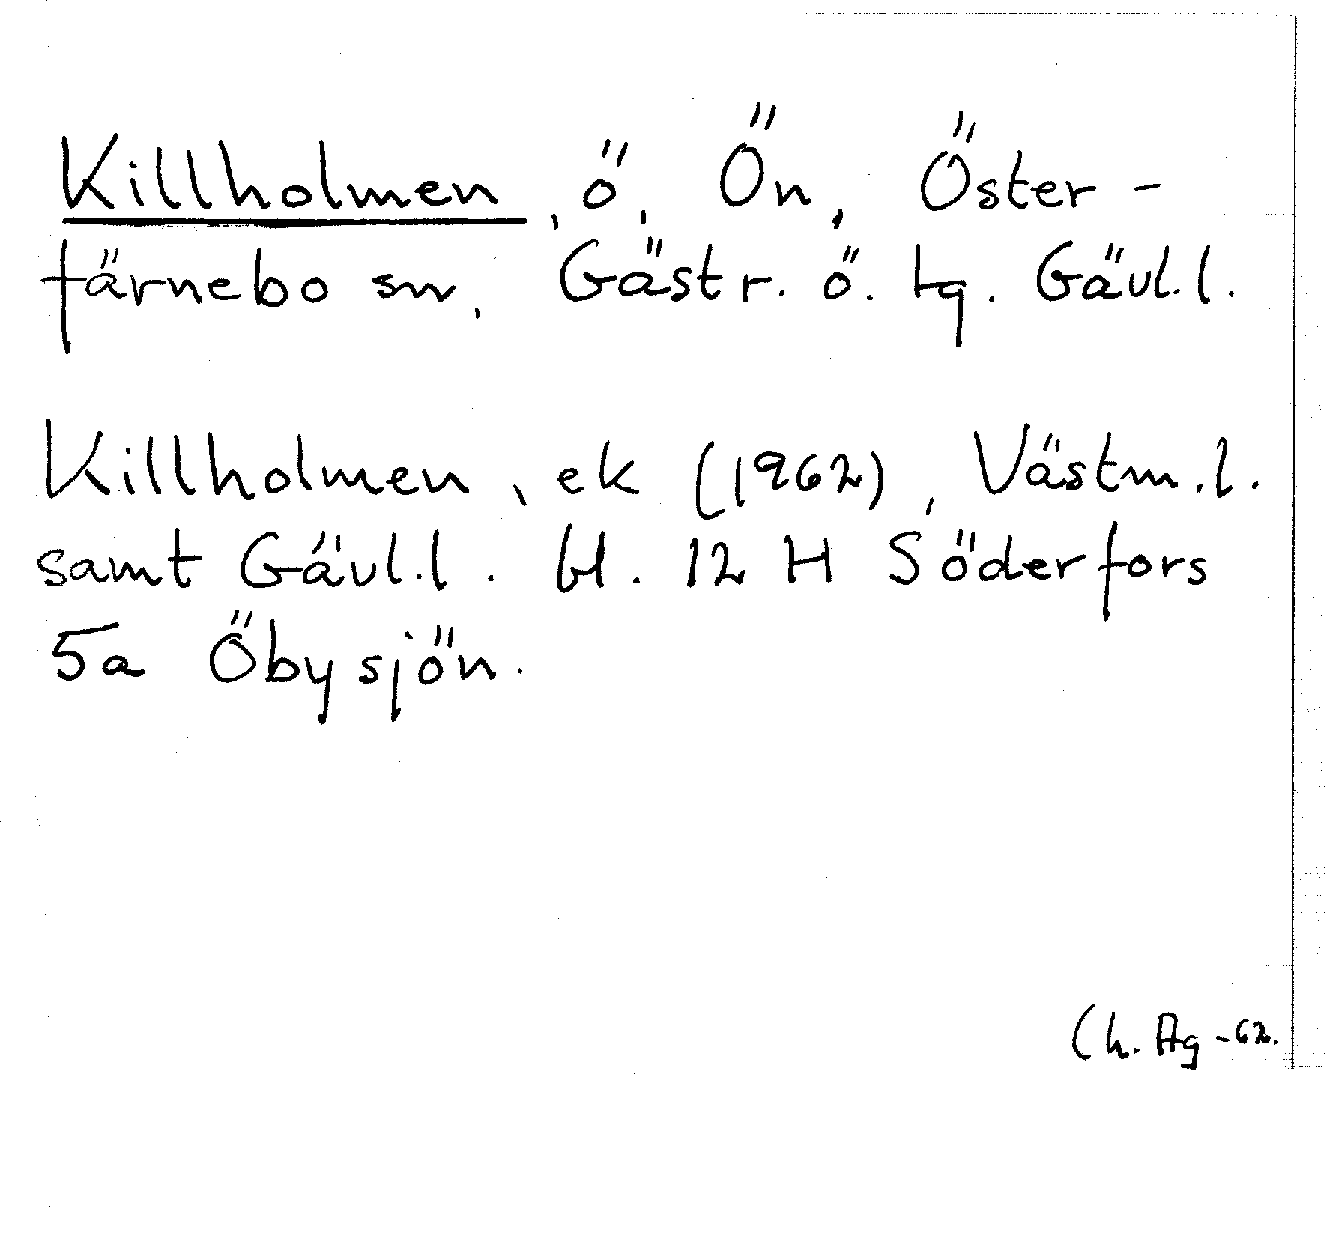 Killholmen, ö, Ön, Öster-
färnebo sn, Gästr. ö. tg. Gävl.l.
Killholmen, ek (1962), Västm.l.
samt Gävl.l. bl. 12 H Söderfors
5a Öbysjön.
Ch. Ag -62.